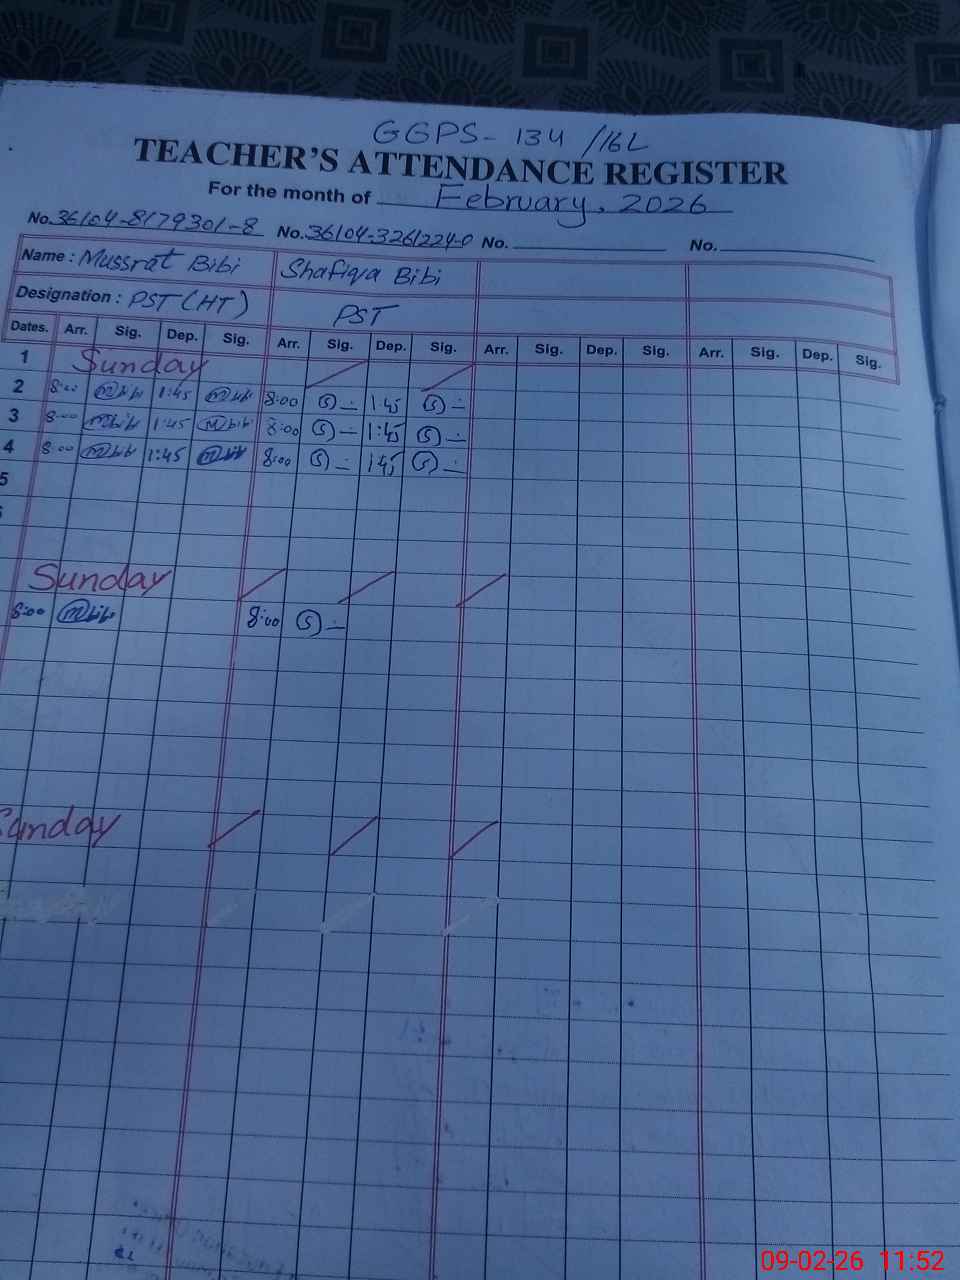 GGPS-134/16L
TEACHER'S ATTENDANCE REGISTER
For the month of February, 2026
No. 36104-8179301-8 No. 36104-3261224-0 No. No.
Name : Mussrat Bibi Shafiqa Bibi
Designation : PST (HT) PST
Dates. Arr. Sig. Dep. Sig. Arr. Sig. Dep. Sig. Arr. Sig. Dep. Sig. Arr. Sig. Dep. Sig.
1 Sunday
2 8:00 Mbibi 1:45 Mbibi 8:00 S 1:45 S
3 8:00 Mbibi 1:45 Mbibi 8:00 S 1:45 S
4 8:00 Mbibi 1:45 Mbibi 8:00 S 1:45 S
5
Sunday
8:00 Mbibi 8:00 S
Sunday
09-02-26 11:52